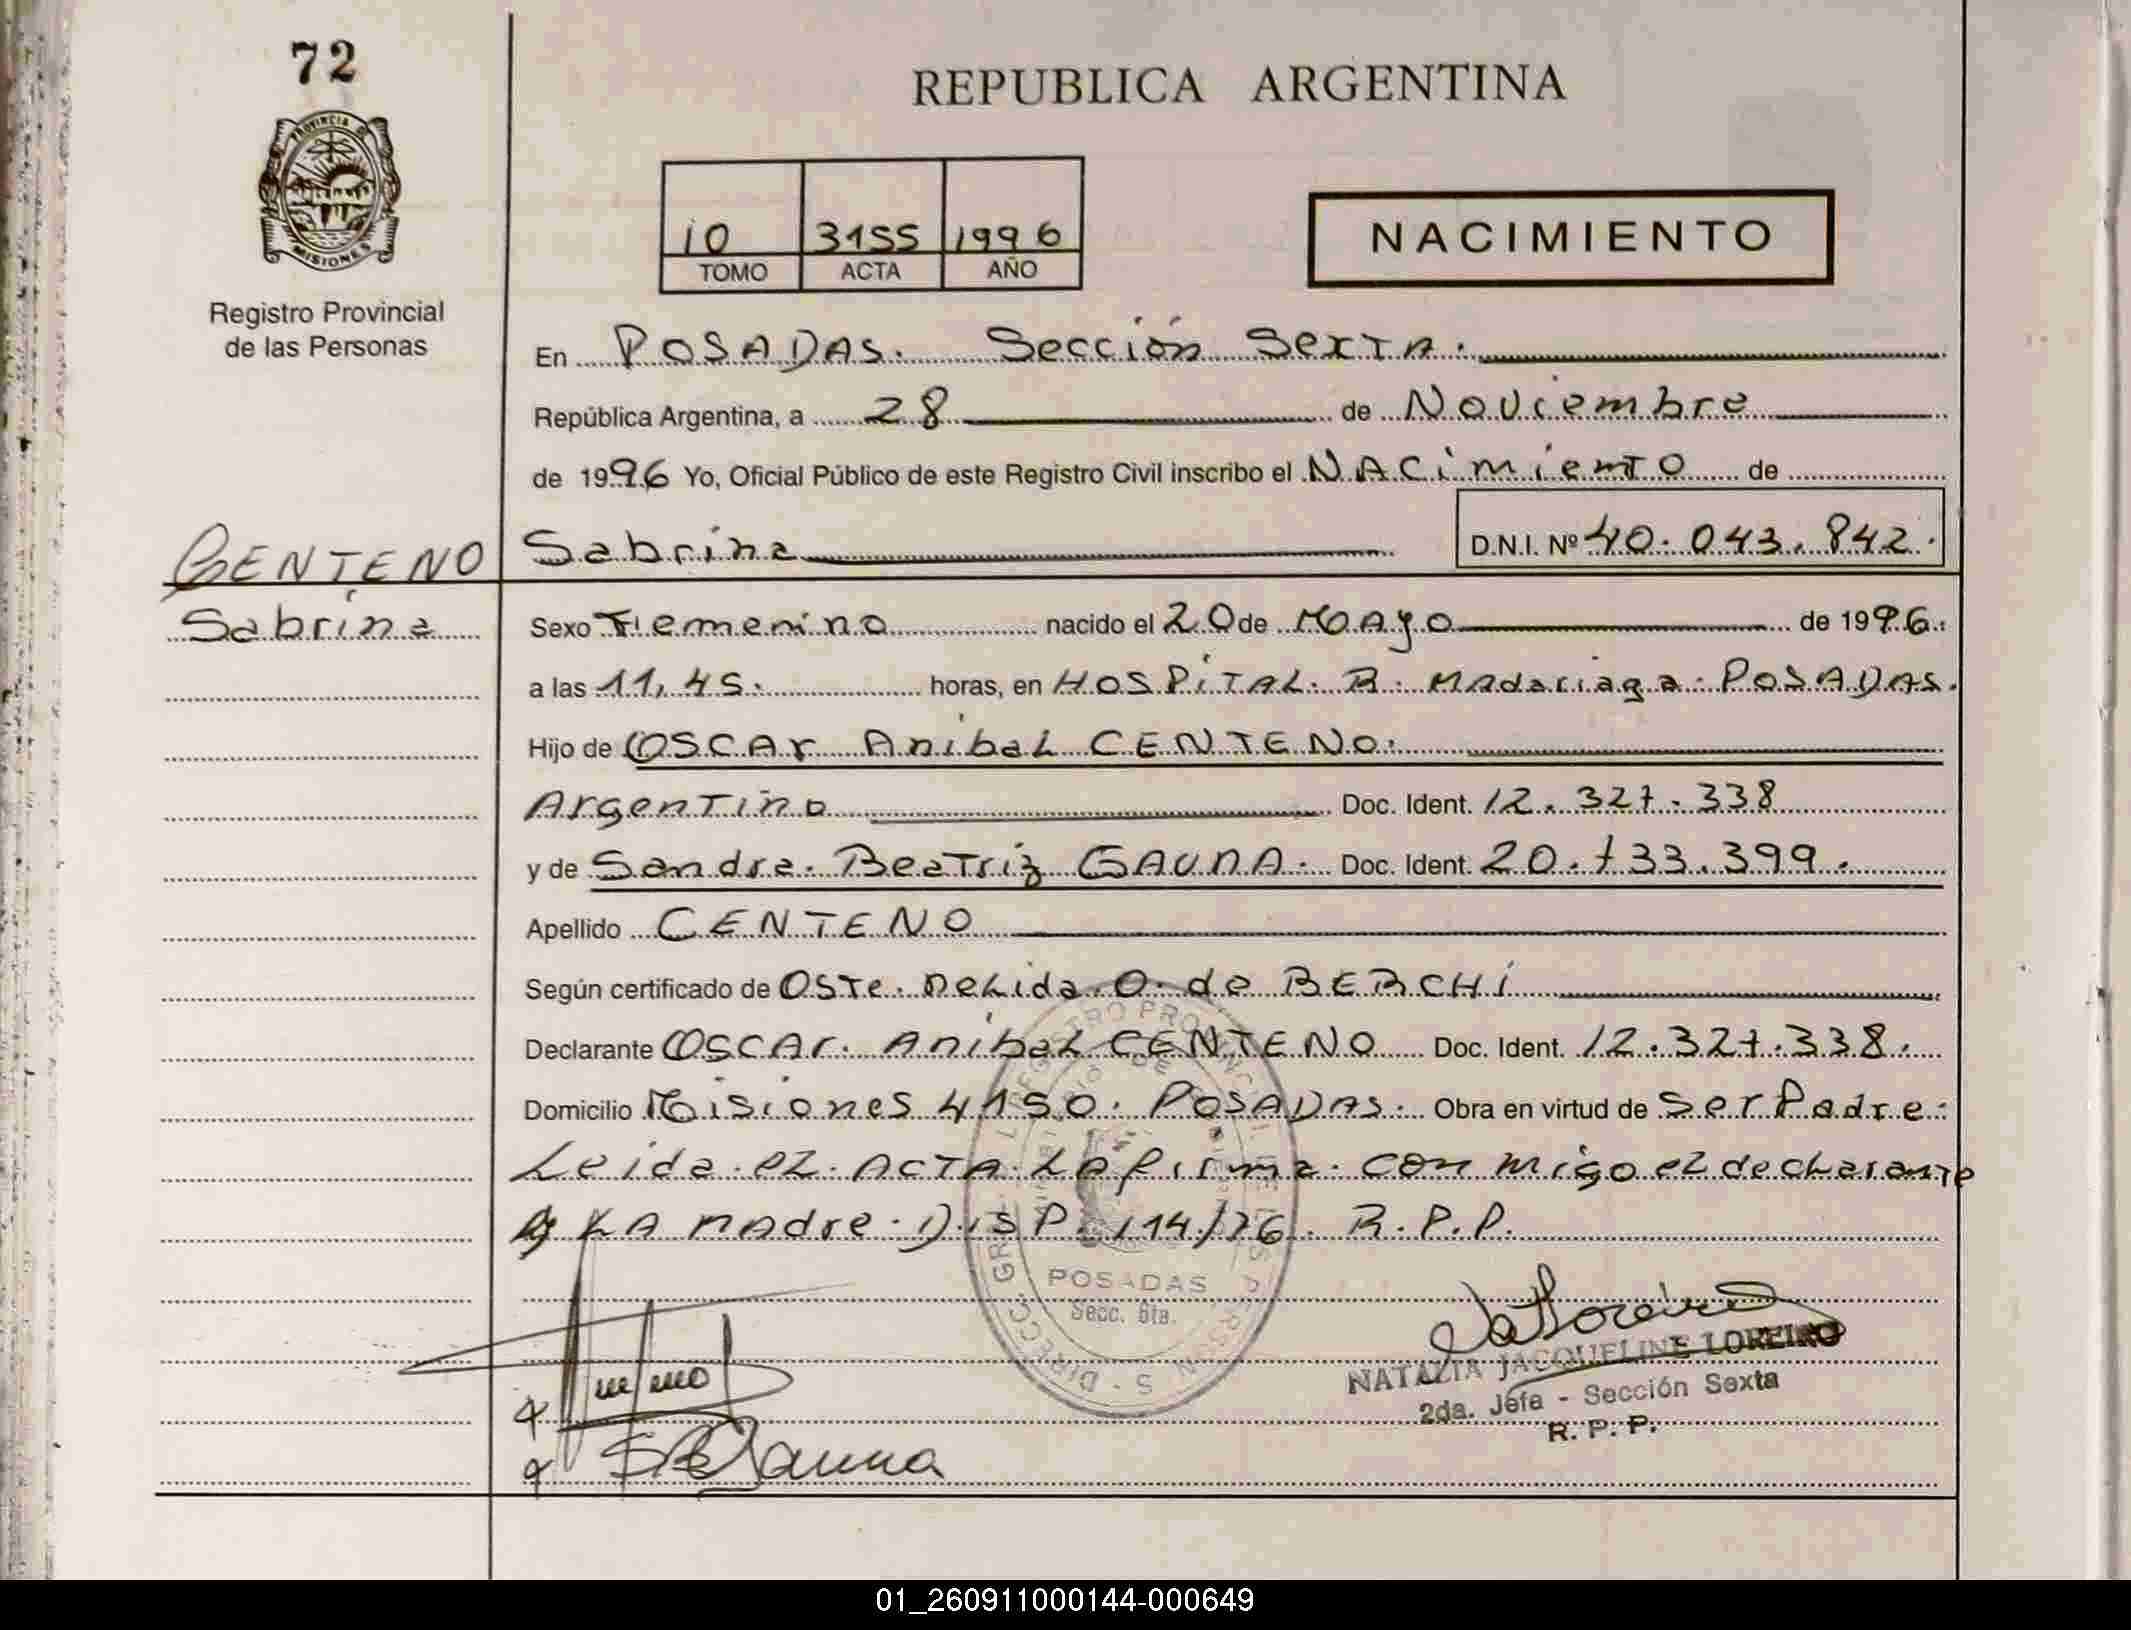 72
PROVINCIA DE
MISIONES
Registro Provincial
de las Personas
REPUBLICA ARGENTINA
10 3155 1996
TOMO ACTA AÑO
NACIMIENTO
En POSADAS. Sección Sexta.
República Argentina, a 28 de Noviembre
de 1996 Yo, Oficial Público de este Registro Civil inscribo el NACimiento de
CENTENO
Sabrina
Sabrina D.N.I. Nº 40.043.842.
Sexo Femenino nacido el 20 de Mayo de 1996.
a las 11,45. horas, en HOSPiTAL R. Madariaga. POSADAS.
Hijo de OSCAr Anibal CENTENO.
Argentino Doc. Ident. 12.327.338
y de Sandra Beatriz GAUNA. Doc. Ident. 20.733.399.
Apellido CENTENO
Según certificado de Oste. Nelida O. de BERCHi
Declarante OSCAr Anibal CENTENO Doc. Ident. 12.327.338.
Domicilio Misiones 4150. POSADAS. Obra en virtud de Ser Padre.
Leida el ACTA La firma con migo el declarante
y LA madre. Disp. 114/76. R.P.P.
POSADAS
Secc. 6ta.
NATALIA JACQUELINE LOREIRO
2da. Jefe - Sección Sexta
R. P. P.
01_260911000144-000649